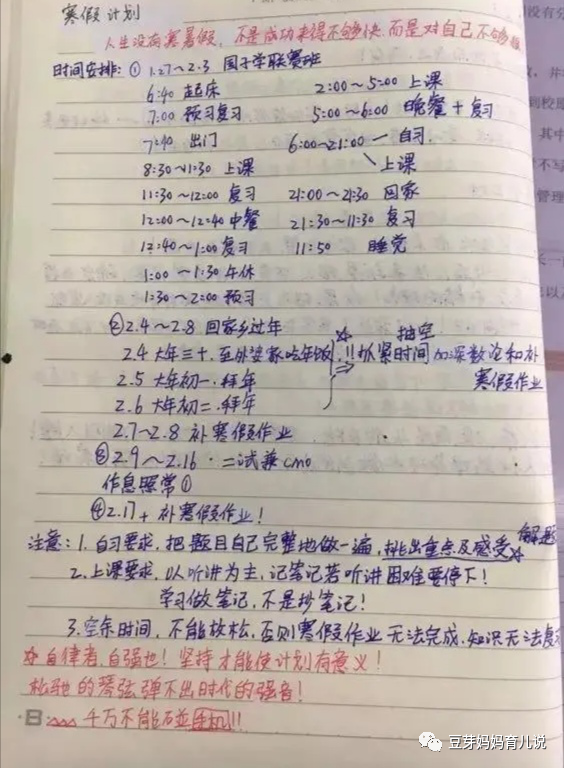 寒假计划
人生没有寒暑假，不是成功来得不够快，而是对自己不够狠
时间安排：① 1.27～2.3 国子学联赛班
6:40 起床 2:00～5:00 上课
7:00 预习复习 5:00～6:00 晚餐+复习
7:40 出门 6:00～21:00 一 自习.
8:30～11:30 上课 上课
11:30～12:00 复习 21:00～21:30 回家
12:00～12:40 中餐 21:30～11:30 复习
12:40～1:00 复习 11:50 睡觉
1:00～1:30 午休
1:30～2:00 预习
②2.4～2.8 回家乡过年 抽空
2.4 大年三十.至外婆家吃年饭 !!抓紧时间加深数论和补
2.5 大年初一.拜年 寒假作业
2.6 大年初二.拜年
2.7～2.8 补寒假作业
③2.9～2.16.二试兼cmo
作息照常①
④2.17+ 补寒假作业！
注意：1.自习要求，把题目自己完整地做一遍，挑出重点及感受 解题
2.上课要求，以听讲为主，记笔记若听讲困难要停下！
学习做笔记，不是抄笔记！
3.空余时间，不能放松，否则寒假作业无法完成.知识无法复习
自律者，自强也！坚持才能使计划有意义！
松弛的琴弦弹不出时代的强音！
千万不能碰手机!!
豆芽妈妈育儿说